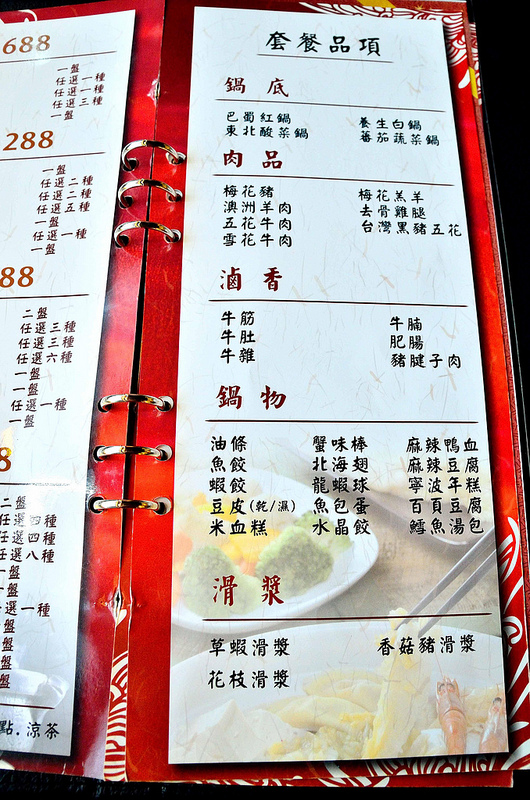 688
一盤
任選一種
任選一種
任選三種
一盤
288
一盤
任選二種
任選二種
任選五種
一盤
任選一種
一盤
88
二盤
任選三種
任選三種
任選六種
一盤
一盤
任選一種
一盤
8
二盤
任選四種
任選四種
任選八種
一盤
一盤
任選一種
一盤
一盤
一盤
一盤
點.涼茶
套餐品項
鍋底
巴蜀紅鍋 養生白鍋
東北酸菜鍋 蕃茄蔬菜鍋
肉品
梅花豬 梅花羔羊
澳洲羊肉 去骨雞腿
五花牛肉 台灣黑豬五花
雪花牛肉
滷香
牛筋 牛腩
牛肚 肥腸
牛雜 豬腱子肉
鍋物
油條 蟹味棒 麻辣鴨血
魚餃 北海翅 麻辣豆腐
蝦餃 龍蝦球 寧波年糕
豆皮(乾/濕) 魚包蛋 百頁豆腐
米血糕 水晶餃 鱈魚湯包
滑漿
草蝦滑漿 香菇豬滑漿
花枝滑漿